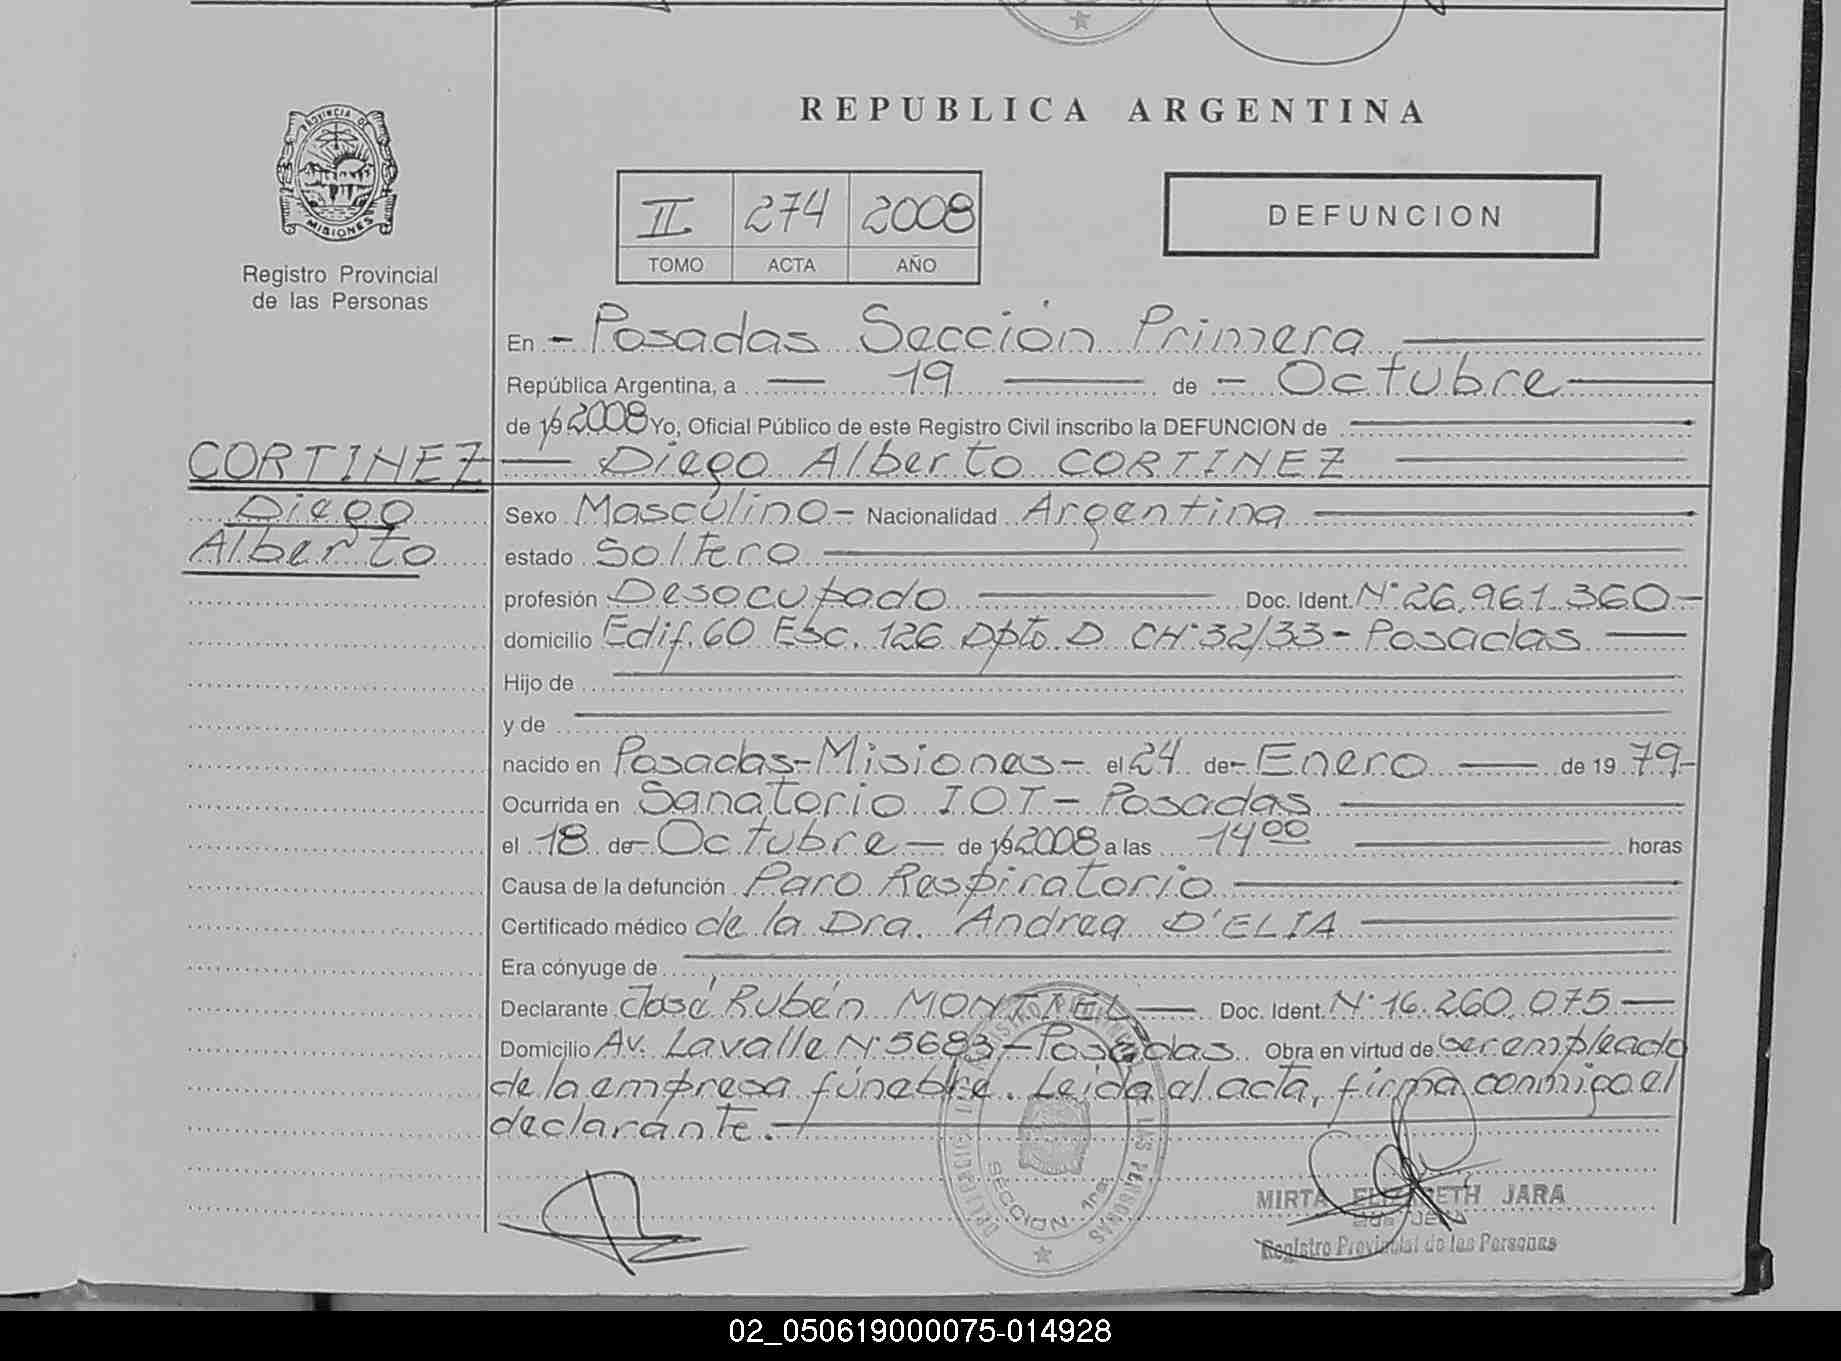 PROVINCIA DE
MISIONES
Registro Provincial
de las Personas
REPUBLICA ARGENTINA
II 274 2008
TOMO ACTA AÑO
DEFUNCION
En - Posadas Sección Primera
República Argentina, a 19 de - Octubre
de 19 2008 Yo, Oficial Público de este Registro Civil inscribo la DEFUNCION de
CORTINEZ Diego Alberto CORTINEZ
Diego
Alberto
Sexo Masculino - Nacionalidad Argentina
estado Soltero
profesión Desocupado Doc. Ident. N° 26.961.360 -
domicilio Edif. 60 Esc. 126 Dpto. D CH: 32/33 - Posadas
Hijo de
y de
nacido en Posadas - Misiones - el 24 de - Enero de 19 79 -
Ocurrida en Sanatorio I.O.T - Posadas
el 18 de - Octubre de 19 2008 a las 14 00 horas
Causa de la defunción Paro Respiratorio
Certificado médico de la Dra. Andrea D'ELIA
Era cónyuge de
Declarante José Rubén Doc. Ident. N° 16.260.075
Domicilio Av. Lavalle N° 5683 - Posadas. Obra en virtud de ser empleado
de la empresa fúnebre. Leida el acta, firma conmigo el
declarante.
SECCION 1ra.
MIRTA ELIZABETH JARA
Registro Provincial de las Personas
02_050619000075-014928